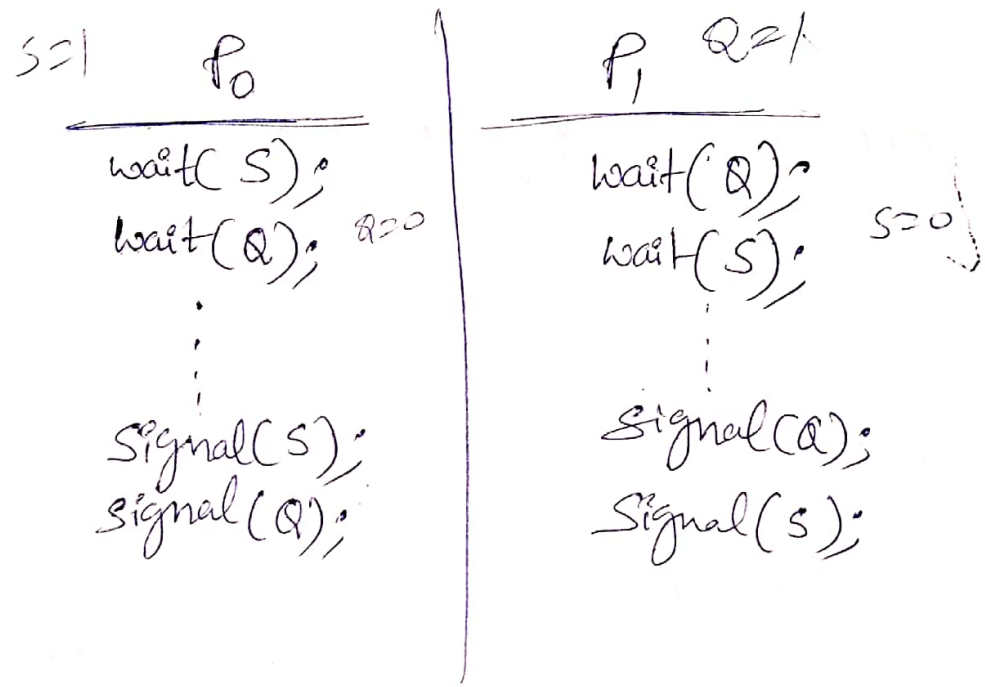 S=1 P0
wait(S);
wait(Q); Q=0
signal(S);
signal(Q);
P1 Q=1
wait(Q);
wait(S); S=0
signal(Q);
signal(S);